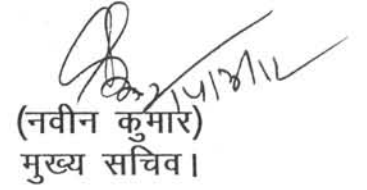 (नवीन कुमार)
मुख्य सचिव।